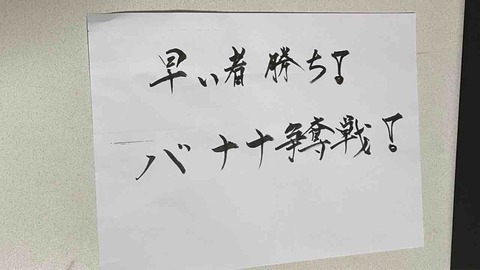 早い者勝ち!
バナナ争奪戦!